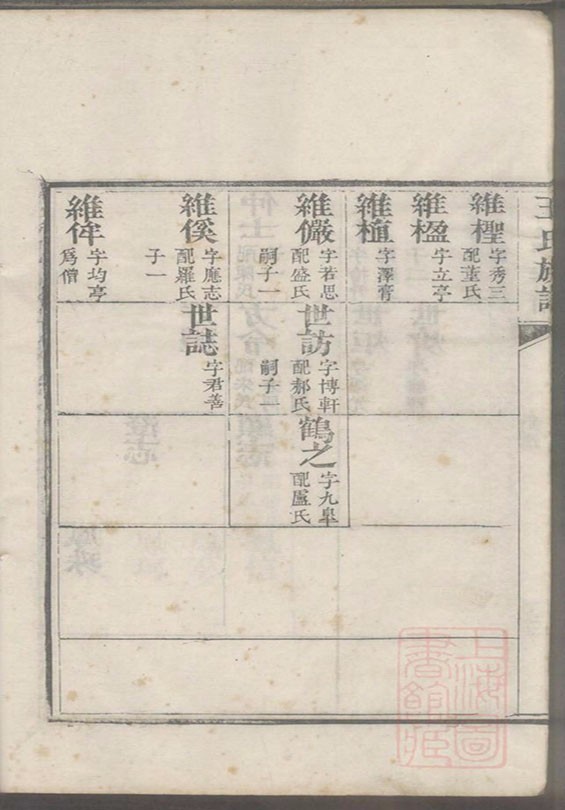 王氏族譜
維檉
字秀三
配董氏
維楹
字立亭
維植
字澤膏
維儼
字若思
配盛氏
嗣子一
世訪
字博軒
配郝氏
嗣子一
鶴之
字九臯
配盧氏
維傒
字應志
配羅氏
子一
世誌
字君善
維侔
字均亭
爲僧
上海圖
書館藏